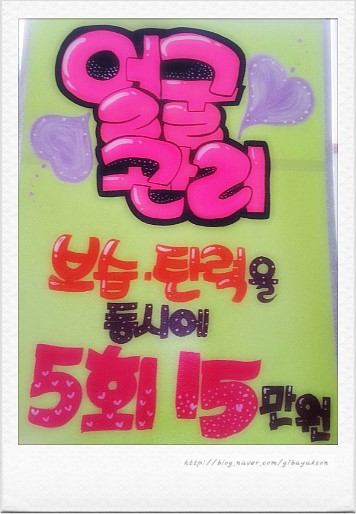 얼굴
관리
보습·탄력을
동시에
5회 15만원
http://blog.naver.com/g1bayakson